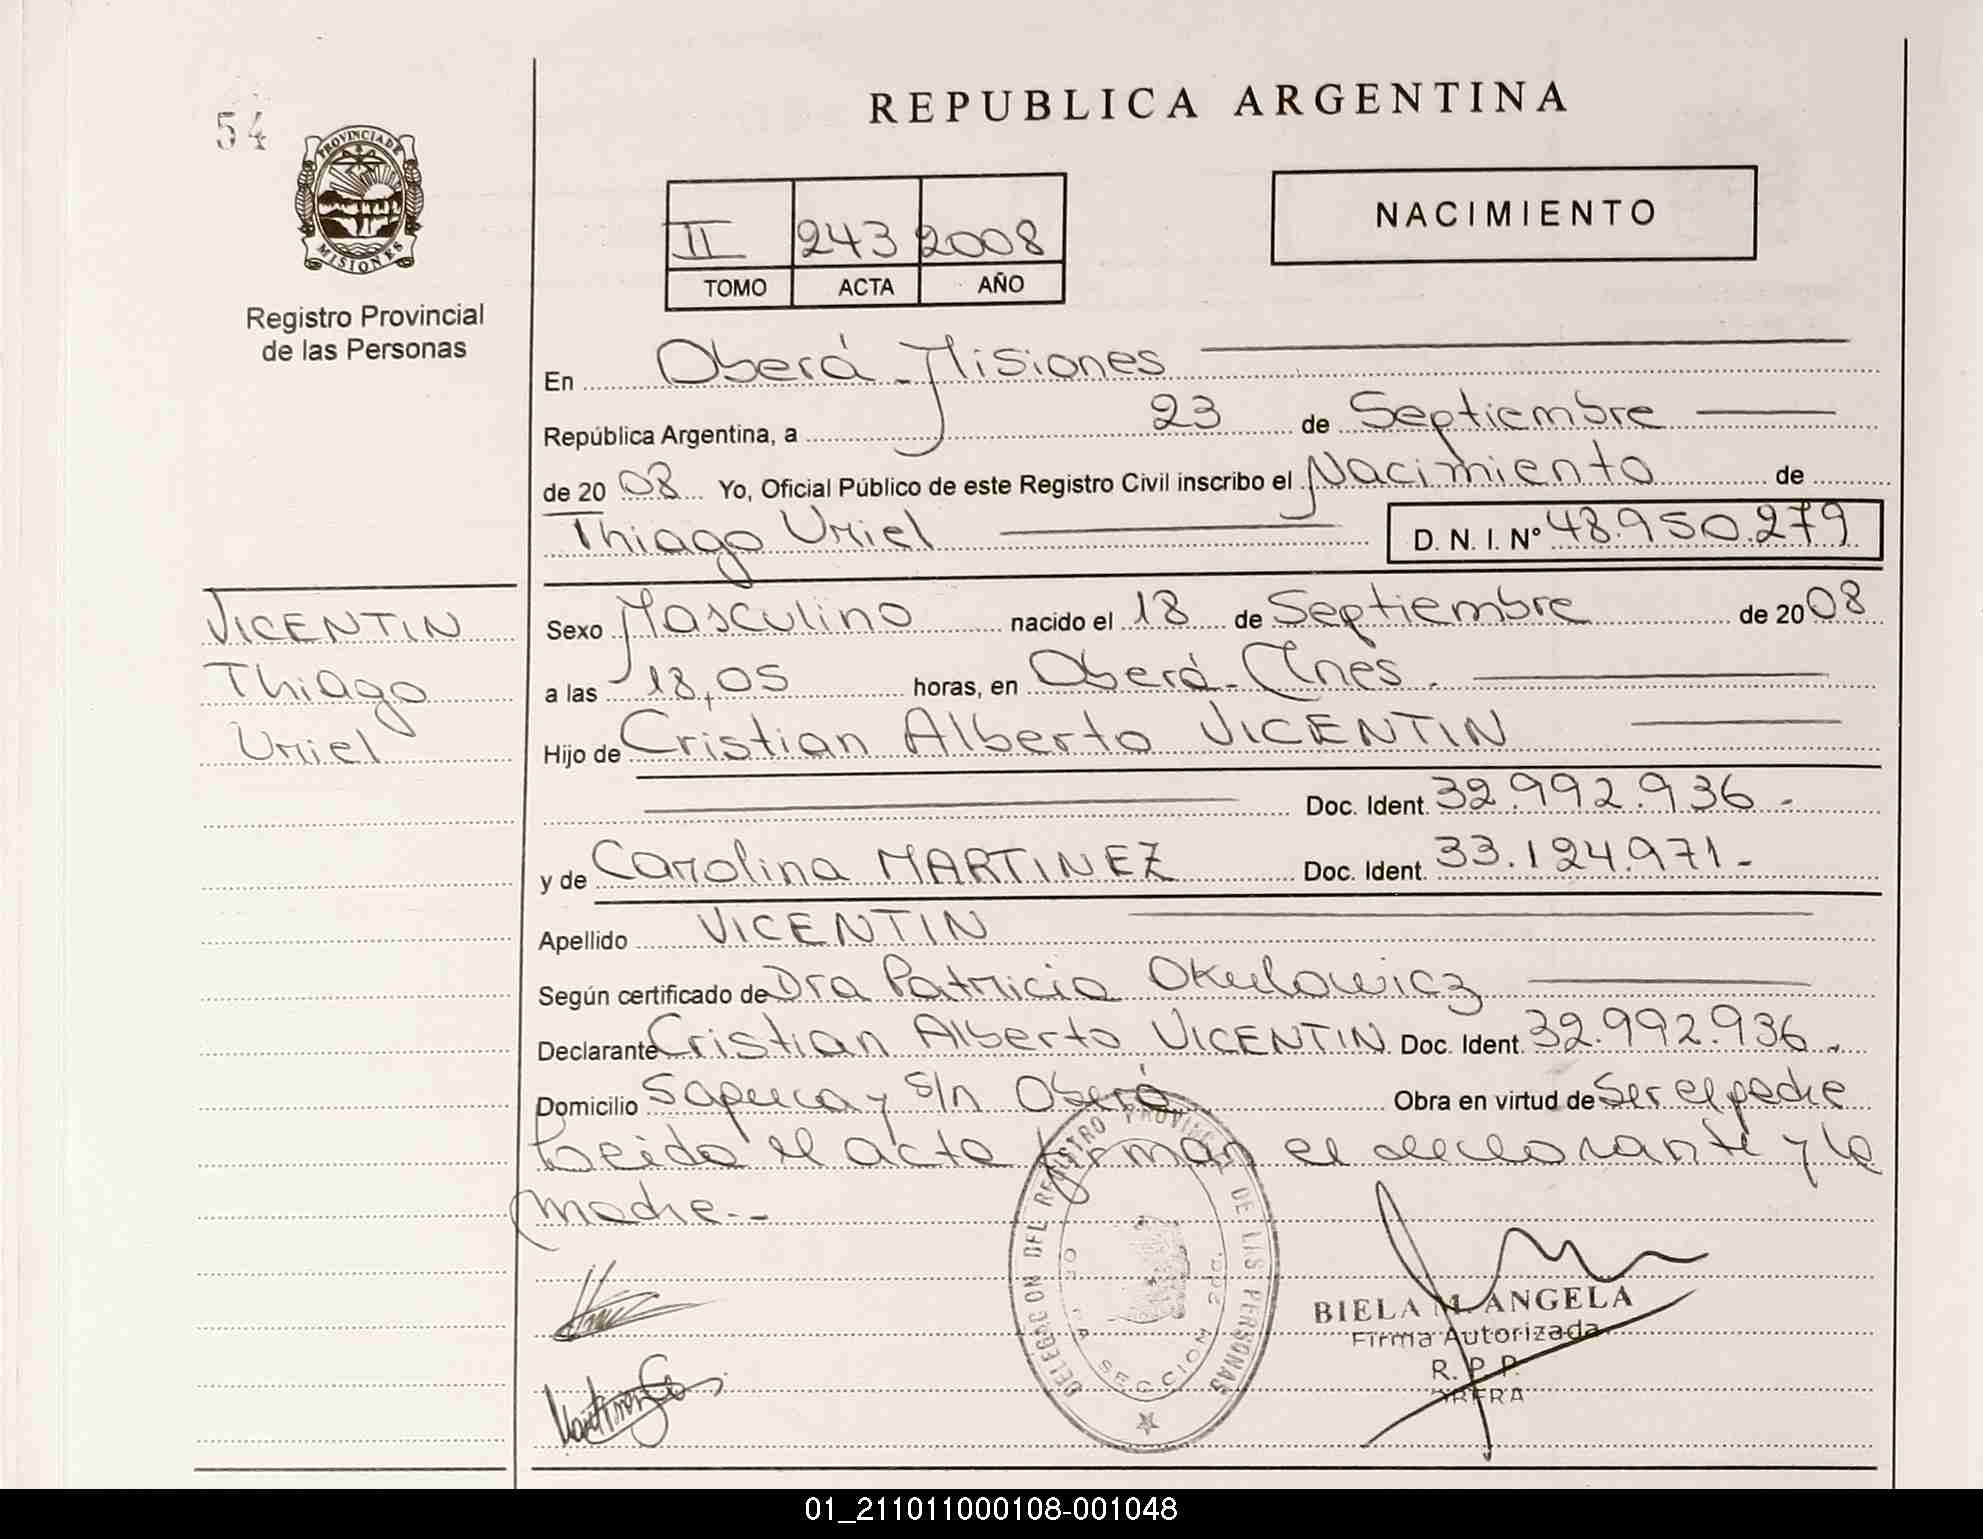 54
REPUBLICA ARGENTINA
PROVINCIA DE
MISIONES
Registro Provincial
de las Personas
NACIMIENTO
II 243 2008
TOMO ACTA AÑO
En Oberá - Misiones
República Argentina, a 23 de Septiembre
de 2008 Yo, Oficial Público de este Registro Civil inscribo el Nacimiento de
Thiago Uriel D. N. I. Nº 48.950.279
VICENTIN
Thiago
Uriel
Sexo Masculino nacido el 18 de Septiembre de 2008
a las 18,05 horas, en Oberá - Mnes.
Hijo de Cristian Alberto VICENTIN
Doc. Ident. 32.992.936 -
y de Carolina MARTINEZ Doc. Ident. 33.124.971 -
Apellido VICENTIN
Según certificado de Dra Patricia Okulowicz
Declarante Cristian Alberto VICENTIN Doc. Ident. 32.992.936.
Domicilio Sapucay s/n Oberá Obra en virtud de Ser el padre
Leida el acta firman el declarante y la
madre.-
DELEGACION DEL REGISTRO PROVINC DE LAS PERSONAS
SECCION 2da.
BIELA M. ANGELA
Firma Autorizada
R. P. P.
OBERA
01_211011000108-001048